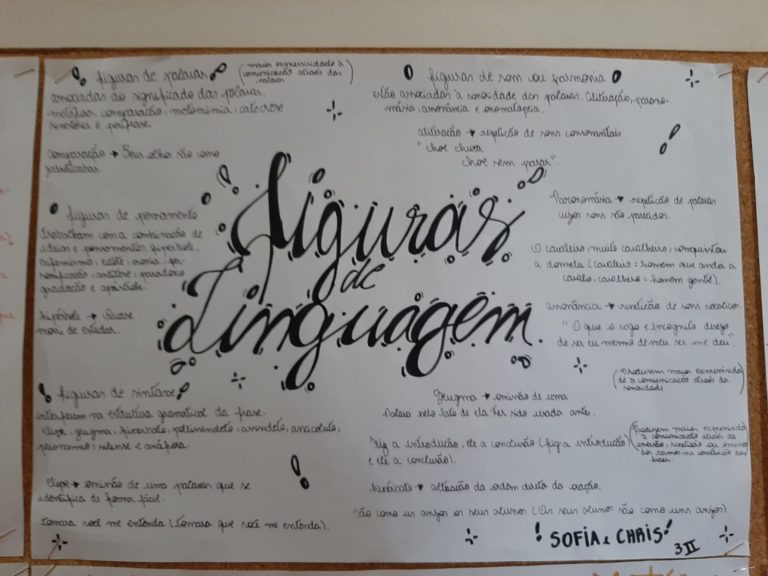 figuras de palavras
(maior expressividade à comunicação através das palavras
associadas ao significado das palavras.
metáfora, comparação, metonímia, catacrese
sinestesia e perífrase.
comparação → Seus olhos são como
jabuticabas
figuras de som ou harmonia
Estão associadas à sonoridade das palavras. Aliteração, parono-
másia, assonância e onomatopeia.
aliteração → repetição de sons consonantais
"chove chuva
chove sem parar".
figuras de pensamento
Trabalham com a combinação de
ideias e pensamentos, hipérbole,
eufemismo, litote, ironia, per-
sonificação, antítese, paradoxo
gradação e apóstrofe.
hipérbole → Quase
morri de estudar.
Figuras
de
Linguagem.
Paronomásia → repetição de palavras
cujos sons são parecidos.
O cavaleiro muito cavalheiro, conquistou
a donzela (cavaleiro = homem que anda a
cavalo, cavalheiro = homem gentil).
assonância → repetição de sons vocálicos
"O que o vago e incógnito desejo
de ser eu mesmo de meu ser me deu".
(Produzem maior expressivida
de à comunicação através da
sonoridade)
figuras de sintaxe
interferem na estrutura gramatical da frase.
Elipse, zeugma, hipérbato, polissíndeto, assíndeto, anacoluto,
pleonasmo, silepse e anáfora.
Elipse → omissão de uma palavra que se
identifica de forma fácil.
Tomara você me entenda (Tomara que você me entenda).
Zeugma → omissão de uma
Palavra pelo fato de ela ter sido usada antes.
Fiz a introdução, ele a conclusão (fiz a introdução
e ele a conclusão).
(Produzem maior expressividade
à comunicação através da
inversão, repetição ou omissão
dos termos na construção das
frases.
hipérbato → alteração da ordem direta da oração.
São como uns anjos os seus alunos (Os seus alunos são como uns anjos)
SOFIA e CHRIS
3 II